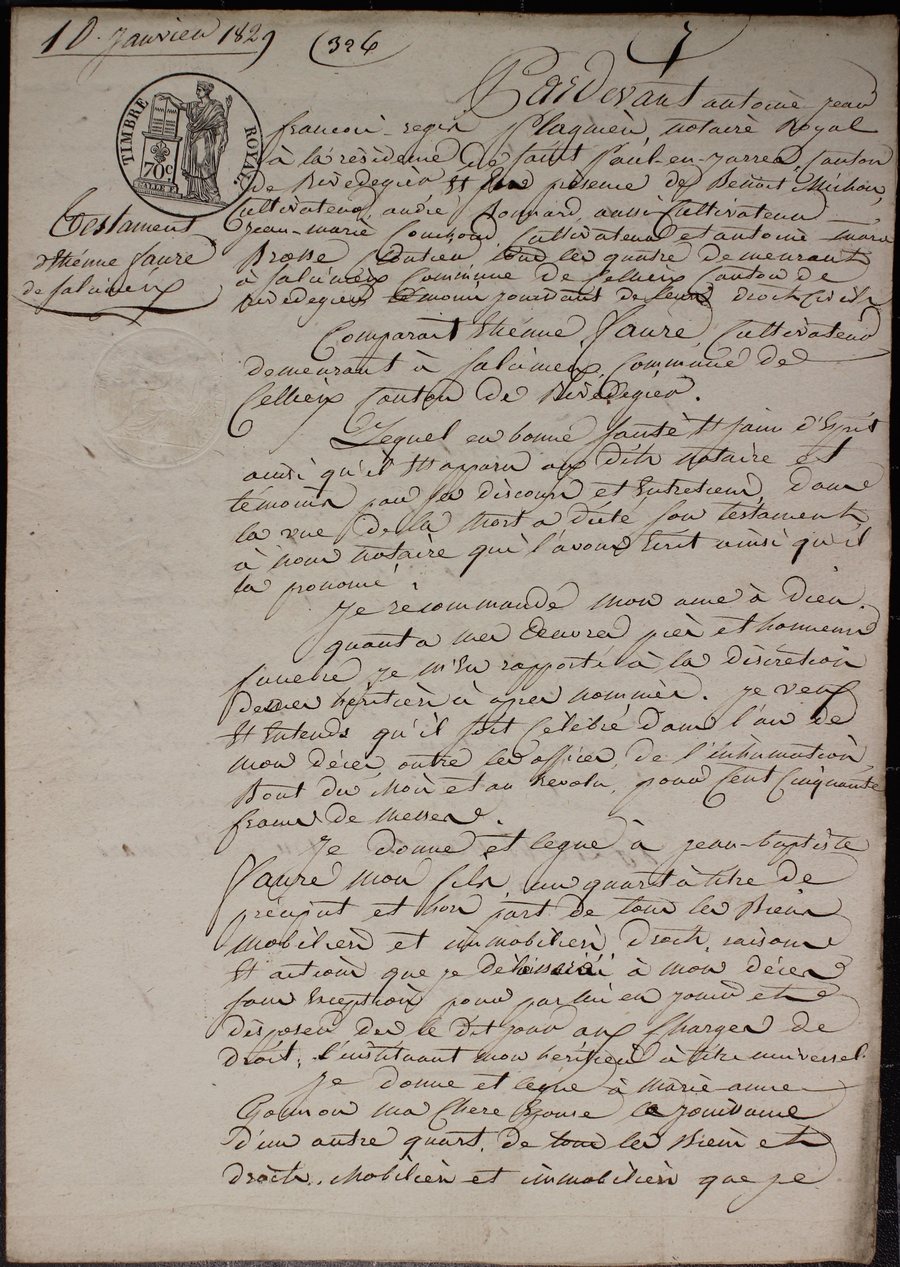 10. Janvier 1829
(326
7
TIMBRE ROYAL
70c
Testament
d'Etienne faure
de Salcineux
Pardevant antoine jean
francois-regis Plagnieu notaire Royal
à la résidence de Saint Paul-en-jarrez, canton
de Rivedegier Et En présence de Benoit Michon,
Cultivateur, andré Bonnard, aussi Cultivateur
jean-marie Cultivateur et antoine marie
Brosse les quatre demeurant
à Salcineux Commune de Cellieux Canton de
Rivedegier témoins jouissant de leurs droits Civils
Comparait Etienne faure, Cultivateur
demeurant à Salcineux, Commune de
Cellieux Canton de Rivedegier.
Lequel en bonne santé Et sain d'Esprit
ainsi qu'il Est apparu aux dits notaire et
témoins par sa discours et Entretiens, dans
la vue de la mort a dicté son testament
à nous notaire qui l'avons Ecrit ainsi qu'il
la prononcé.
Je récommande mon ame à dieu.
quant a mes Oeuvres pies et honneurs
funebre je m'En rapporte à la discretion
de mes héritiers ci après nommés. je veux
Et Entends qu'il soit Celébré dans l'an de
mon décès, outre les offices de l'inhumation,
Bout du Mois et an Revolu, pour Cent Cinquante
francs de Messes.
Je donne et legue à jean-baptiste
faure mon fils, un quart à titre de
préciput et hors part de tous les Biens
mobiliers et immobiliers droits, raisons
Et actions que je délaisserai à mon décès
sans Exception pour par lui en jouir et
disposer des le dit jour aux Charges de
droit, l'instituant mon héritier à titre universel.
Je donne et legue à marie-anne
ma Chere Epouse la jouissance
d'un autre quart de tous les Biens et
droits, Mobiliers et immobiliers que je